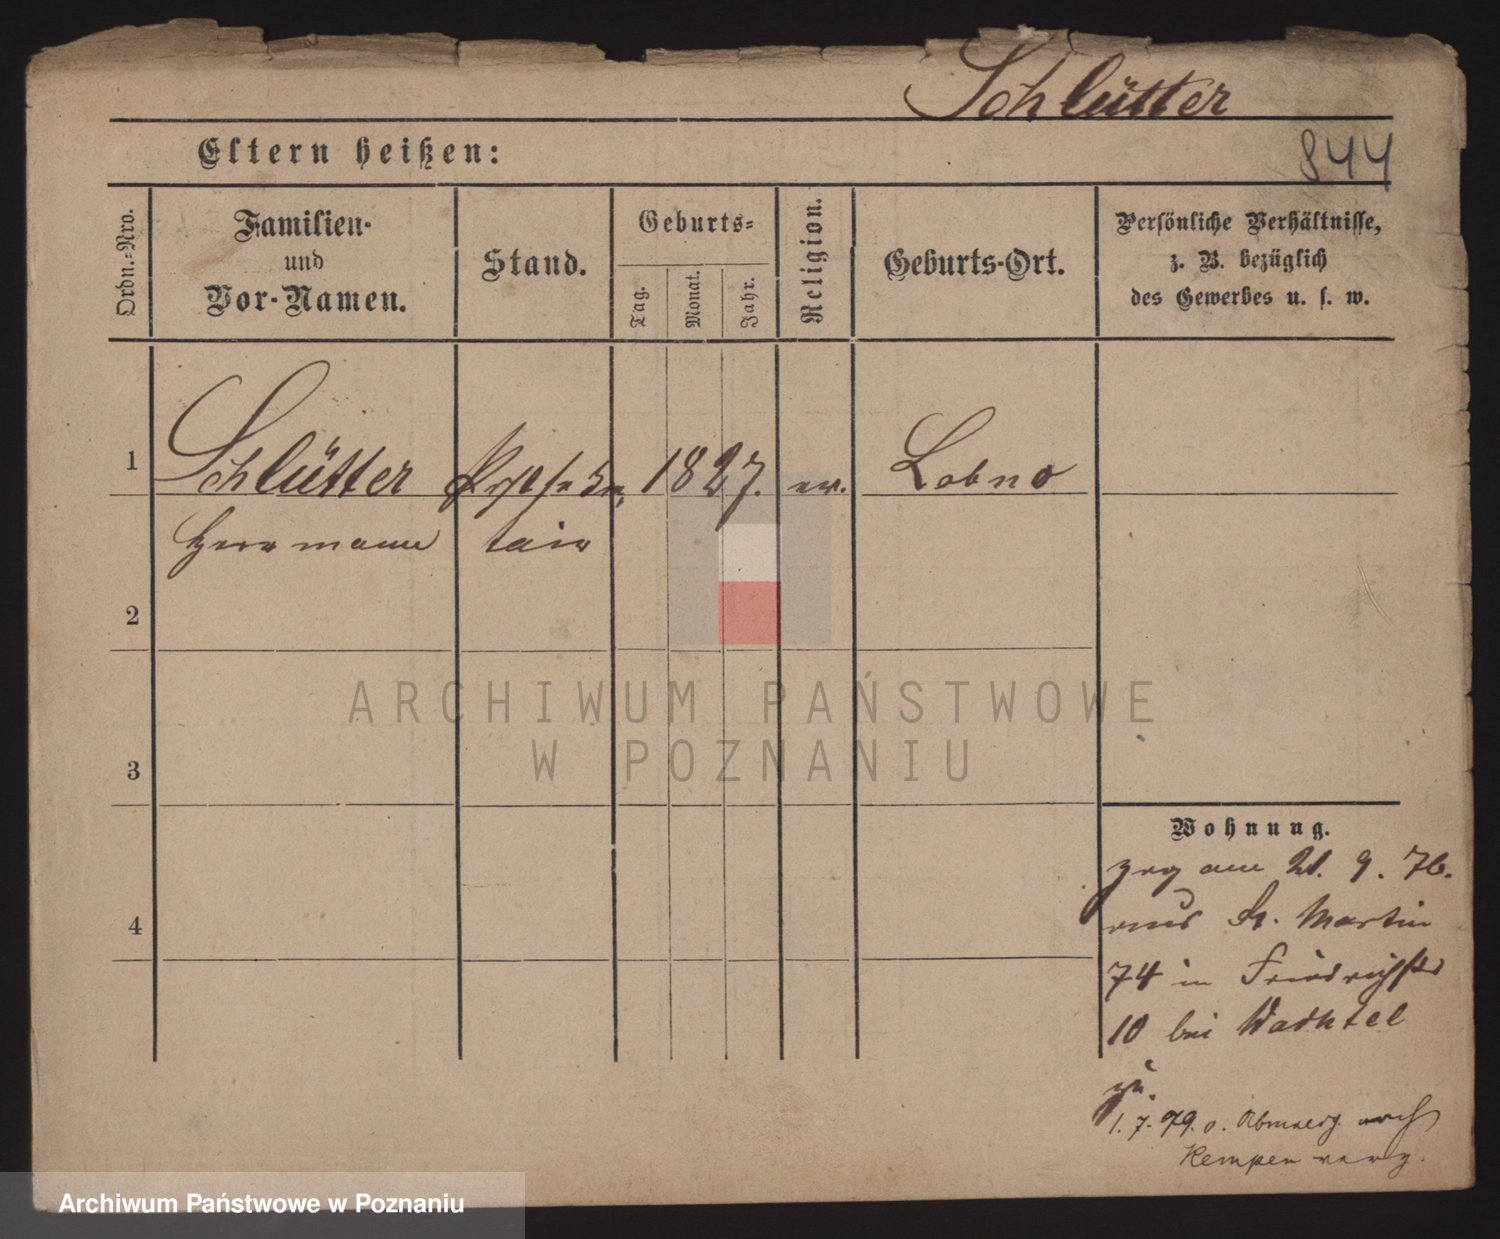 Schlütter
844
Eltern heißen:
Ordn.-Nro.
Familien-
und
Vor-Namen.
Stand.
Geburts-
Tag.
Monat.
Jahr.
Religion.
Geburts-Ort.
Persönliche Verhältnisse,
z. B. bezüglich
des Gewerbes u. s. w.
1 Schlütter 1827. ev.
Herrmann
2
3
4
Wohnung.
zog am 21. 9. 76.
aus St. Martin
74 in Friedrichstr
10 bei Wachtel
zu.
1. 7. 79. o. Abmeldg. nach
Kempen verz.
ARCHIWUM PAŃSTWOWE
W POZNANIU
Archiwum Państwowe w Poznaniu